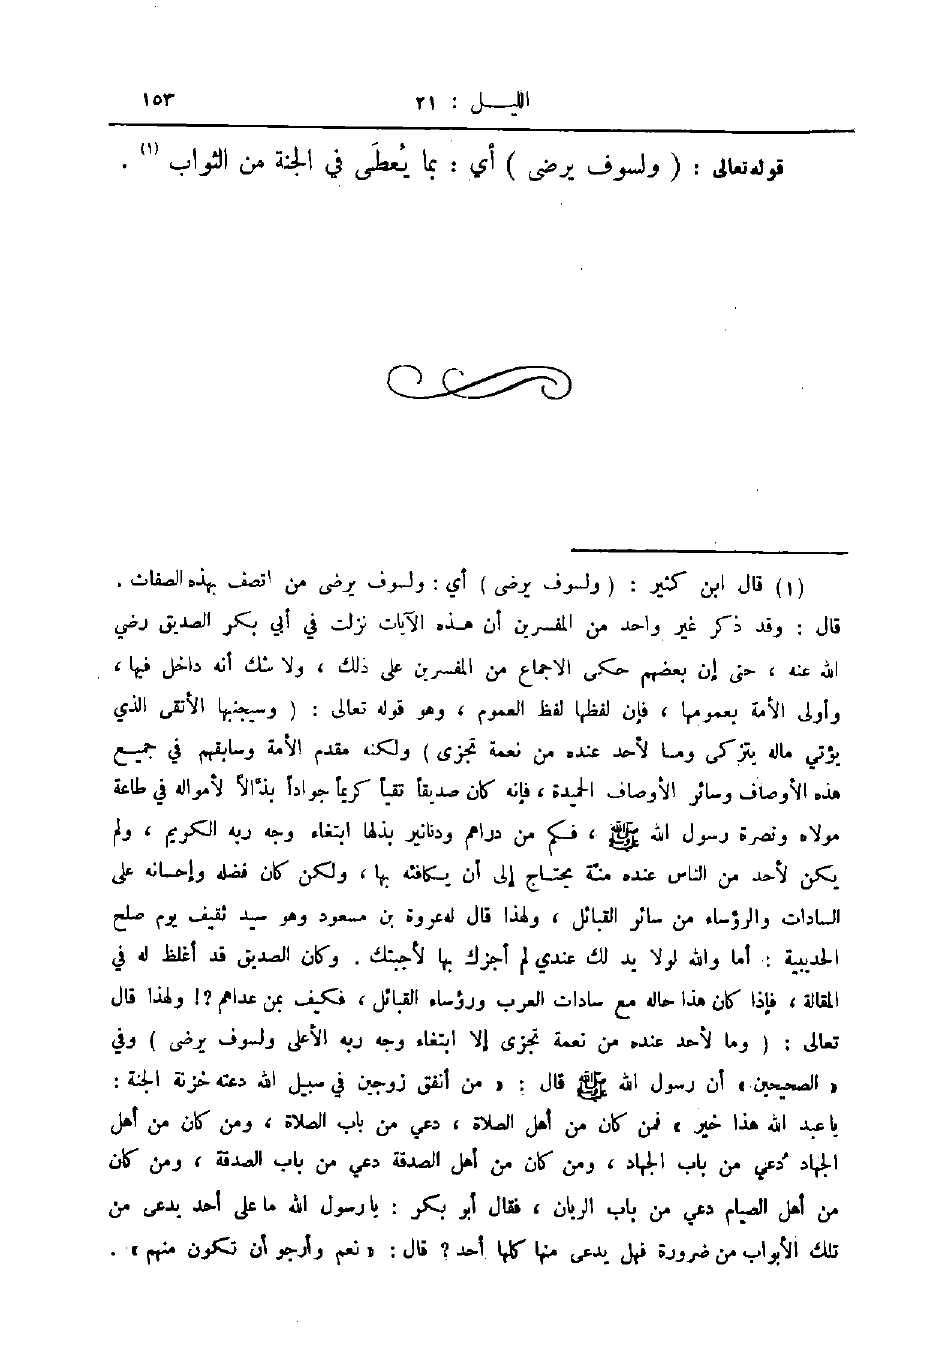 الليـــل : ٢١ ١٥٣
قوله تعالى : ( ولسوف يرضى ) أي : بما يُعطَى في الجنة من الثواب (١) .
(١) قال ابن كثير : ( ولسوف يرضى ) أي : ولسوف يرضى من اتصف بهذه الصفات .
قال : وقد ذكر غير واحد من المفسرين أن هذه الآيات نزلت في أبي بكر الصديق رضي
الله عنه ، حتى إن بعضهم حكى الاجماع من المفسرين على ذلك ، ولا شك أنه داخل فيها ،
وأولى الأمة بعمومها ، فإن لفظها لفظ العموم ، وهو قوله تعالى : ( وسيجنبها الأتقى الذي
يؤتي ماله يتزكى ومـا لأحد عنده من نعمة تجزى ) ولكنه مقدم الأمة وسابقهم في جميـع
هذه الأوصاف وسائر الأوصاف الحميدة ، فإنه كان صديقاً تقياً كريماً جواداً بذّالاً لأمواله في طاعة
مولاه ونصرة رسول الله ﷺ ، فـكم من دراهم ودنانير بذلها ابتغاء وجه ربه الـكريم ، ولم
يـكن لأحد من الناس عنده منّة يحتـاج إلى أن يـكافئه بها ، ولـكن كان فضله وإحسانه على
السادات والرؤساء من سائر القبائل ، ولهذا قال له عروة بن مسعود وهو سيد ثقيف يوم صلح
الحديبية : أما والله لولا يد لك عندي لم أجزك بها لأجبتك . وكان الصديق قد أغلظ له في
المقالة ، فإذا كان هذا حاله مع سادات العرب ورؤساء القبائل ، فـكيف بمن عداهم ؟! ولهذا قال
تعالى : ( وما لأحد عنده من نعمة تجزى إلا ابتغاء وجه ربه الأعلى ولسوف يرضى ) وفي
« الصحيحين » أن رسول الله ﷺ قال : « من أنفق زوجين في سبيل الله دعته خزنة الجنة :
يا عبد الله هذا خير » فمن كان من أهل الصلاة ، دعي من باب الصلاة ، ومن كان من أهل
الجهاد دُعي من باب الجهاد ، ومن كان من أهل الصدقة دعي من باب الصدقة ، ومن كان
من أهل الصيام دعي من باب الريان ، فقال أبو بـكر : يا رسول الله ما على أحد يدعى من
تلك الأبواب من ضرورة فهل يدعى منها كلها أحد ؟ قال : « نعم وأرجو أن تـكون منهم » .